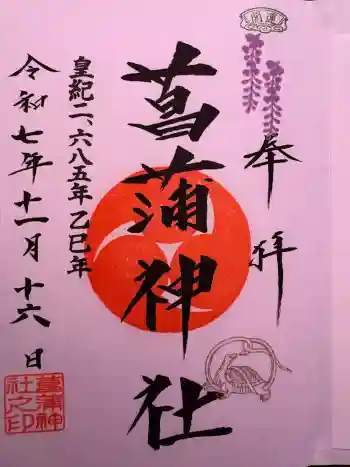 奉拝
菖蒲神社
皇紀二、六八五年乙巳年
令和七年十一月十六日
菖蒲神
社之印